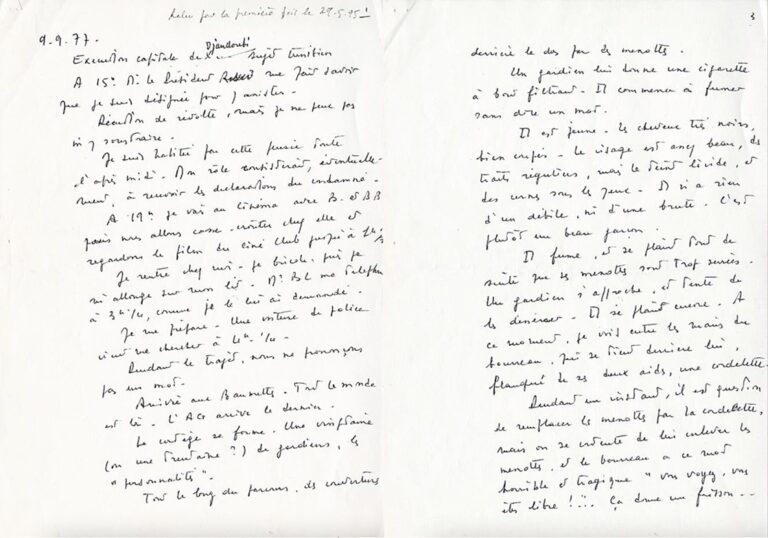 Relu pour la première fois le 29.5.95!
9.9.77.
Exécution capitale de Djandoubi sujet tunisien
A 15h Mr le Président R me fait savoir
que je suis désignée pour y assister.
Réaction de révolte, mais je ne peux pas
m'y soustraire.
Je suis habitée par cette pensée toute
l'après midi. Mon rôle consisterait, éventuelle-
ment, à recevoir les déclarations du condamné.
A 19h je vais au cinéma avec B. et BB
puis nous allons casse-croûter chez elle et
regardons le film du ciné club jusqu'à 1h.
Je rentre chez moi - je bricole, puis je
m'allonge sur mon lit. Mr BL me téléphone
à 3h 1/4, comme je le lui ai demandé.
Je me prépare - Une voiture de police
vient me chercher à 4h 1/4.
Pendant le trajet, nous ne prononçons
pas un mot.
Arrivée aux Baumettes. Tout le monde
est là. L'AG arrive le dernier.
Le cortège se forme. Une vingtaine
(ou une trentaine?) de gardiens, les
"personnalités".
Tout le long du parcours, des couvertures
3
derrière le dos par les menottes.
Un gardien lui donne une cigarette
à bout filtrant - Il commence à fumer
sans dire un mot.
Il est jeune - Les cheveux très noirs,
bien coiffés - Le visage est assez beau, des
traits réguliers, mais le teint livide, et
des cernes sous les yeux - Il n'a rien
d'un débile, ni d'une brute. C'est
plutôt un beau garçon.
Il fume, et se plaint tout de
suite que ses menottes sont trop serrées.
Un gardien s'approche, et tente de
les desserrer - Il se plaint encore. A
ce moment, je vois entre les mains du
bourreau, qui se tient derrière lui,
flanqué de ses deux aides, une cordelette.
Pendant un instant, il est question
de remplacer les menottes par la cordelette,
mais on se contente de lui enlever les
menottes, et le bourreau a ce mot
horrible et tragique "vous voyez, vous
êtes libre!..." Ça donne un frisson...